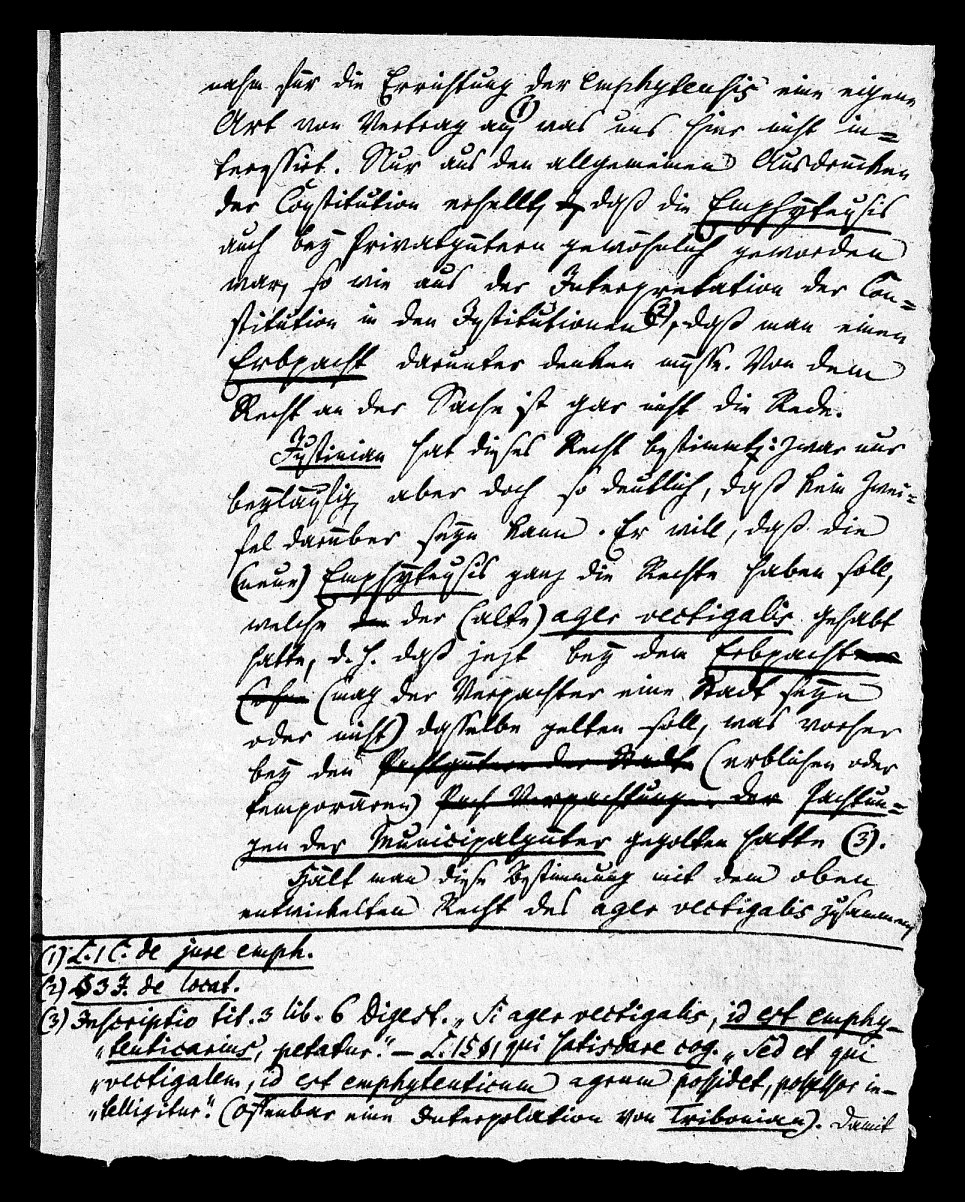 nahm für die Errichtung der Emphyteusis eine eigene
Art von Vertrag an (1) was uns hier nicht in=
teressirt. Nur aus den allgemeinen Ausdrücken
der Constitution erhellt, daß die Emphyteusis
auch bey Privatgütern gewöhnlich geworden
war, so wie aus der Interpretation der Con=
stitution in den Institutionen (2), daß man einen
Erbpacht darunter denken müsse. Von dem
Recht an der Sache ist gar nicht die Rede.
Justinian hat dieses Recht bestimmt: zwar nur
beyläufig, aber doch so deutlich, daß kein Zwei=
fel darüber seyn kann. Er will, daß die
(neue) Emphyteusis ganz die Rechte haben soll,
welche der (alte) ager vectigalis gehabt
hatte, d. h. daß jetzt bey dem Erbpacht
(mag der Verpachter eine Stadt seyn
oder nicht) dasselbe gelten soll, was vorher
bey den Pachtgütern der Stadt (erblichen oder
temporären) Verpachtungen der Pachtun=
gen der Municipalgüter gegolten hatte (3).
Hält man diese Bestimmung mit dem oben
entwickelten Recht des ager vectigalis zusammen,
(1) L. 1 C. de jure emph.
(2) §3 J. de locat.
(3) Inscriptio tit. 3 lib. 6 Digest. „Si ager vectigalis, id est emphy-
„teuticarius, petatur." — L. 15 §1 qui satisdare cog. „Sed et qui
„vectigalem, id est emphyteuticum agrum possidet, possessor in-
„telligitur." (Offenbar eine Interpolation von Tribonian). Damit